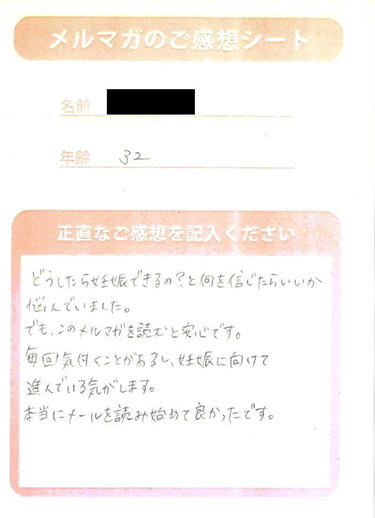 メルマガのご感想シート
名前
年齢 32
正直なご感想を記入ください
どうしたら妊娠できるの?と何を信じたらいいか
悩んでいました。
でも、このメルマガを読むと安心です。
毎回気付くことがあるし、妊娠に向けて
進んでいる気がします。
本当にメールを読み始めて良かったです。